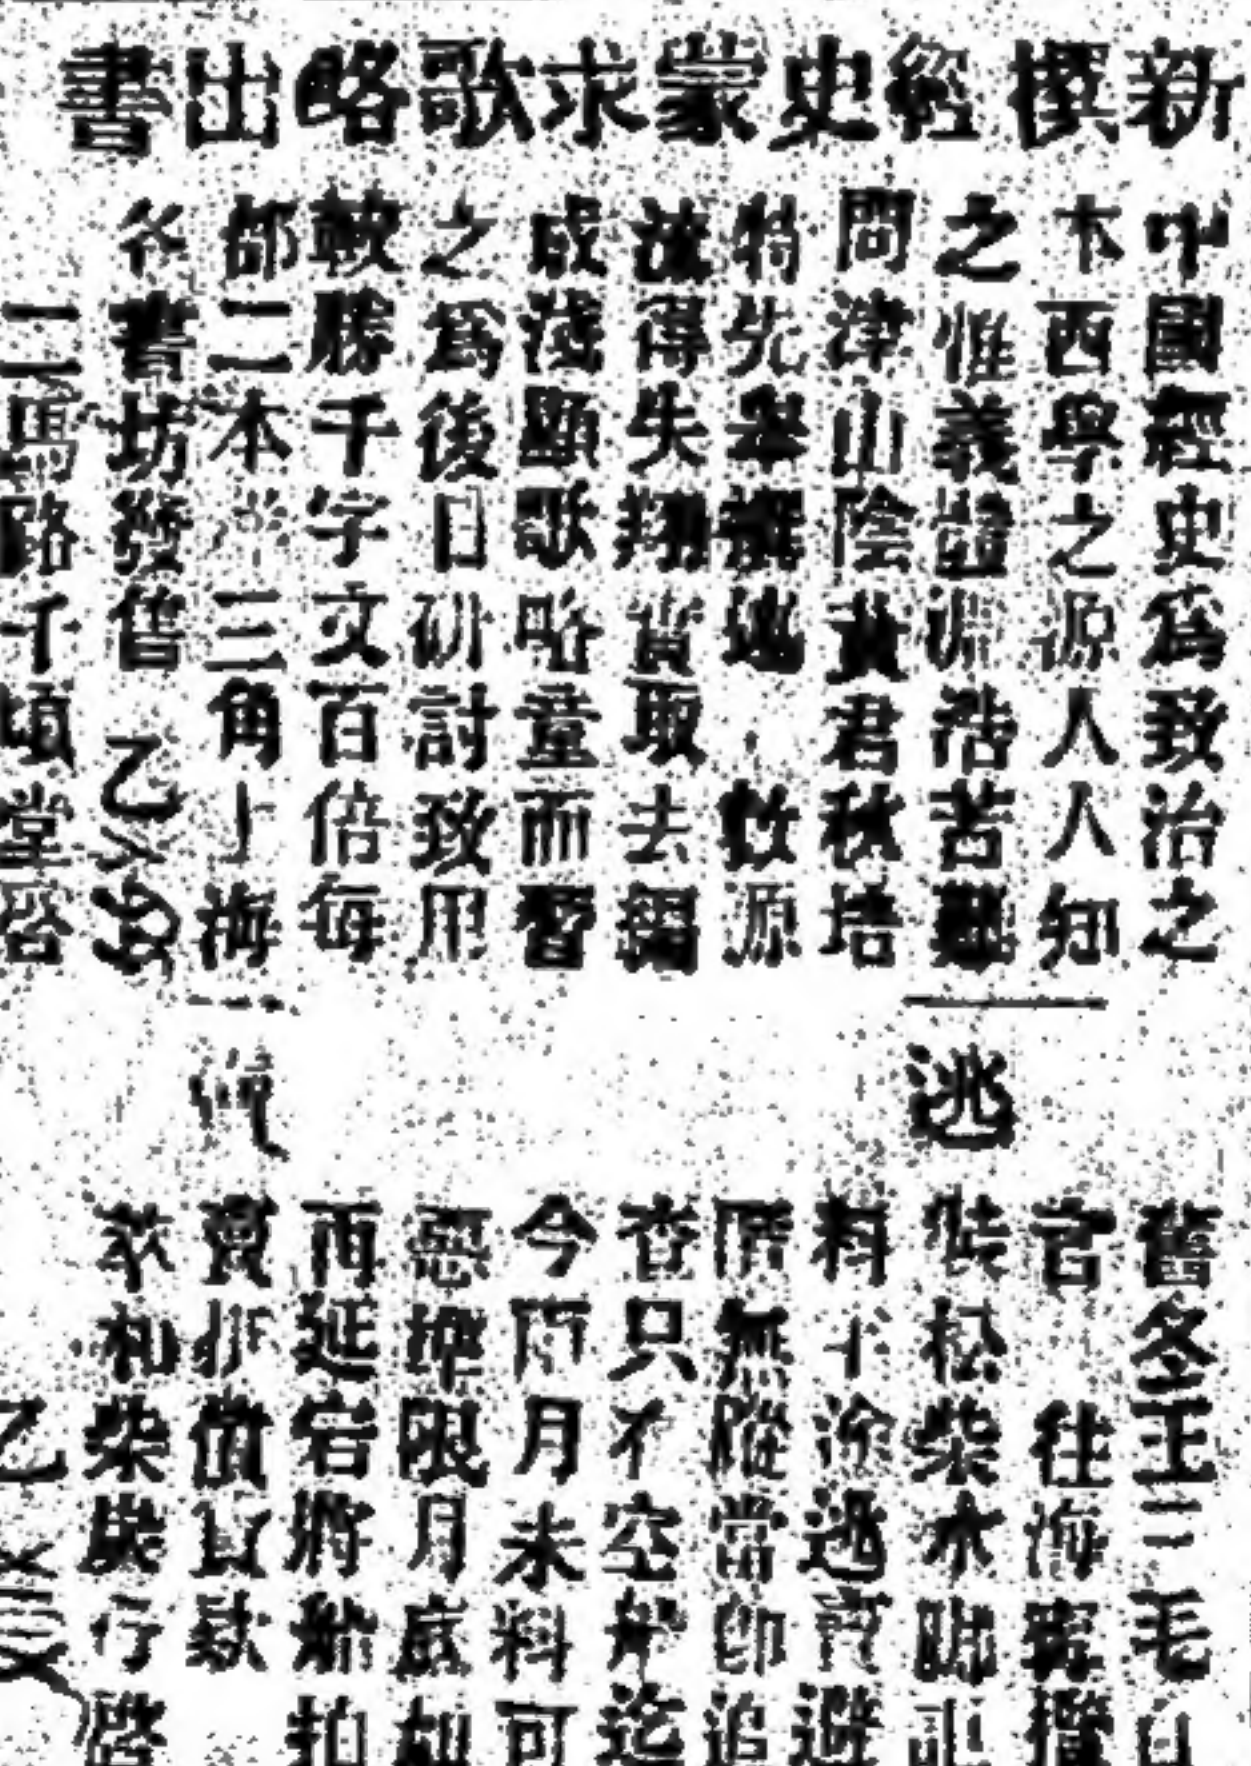 新撰經史蒙求歌略出書
中國經史為致治之
本西學之源人人知
之惟義蘊淵浩苦難
問津山陰黃君秋培
特先舉撰 數源
得失 實取去編
成淺顯歌略童而習
之為後日研討致用
較勝千字文百倍每
部二本 三角上海
各書坊發售
二馬路千頃堂啓
逃
舊冬王三毛自
官 往海寗攬
裝松柴水腳
料 途逃賣避
匿無蹤當即追
查只有空船迄
今兩月未料可
惡準限月底如
再延宕將船拍
賣作償貨款
萩和柴炭行啓